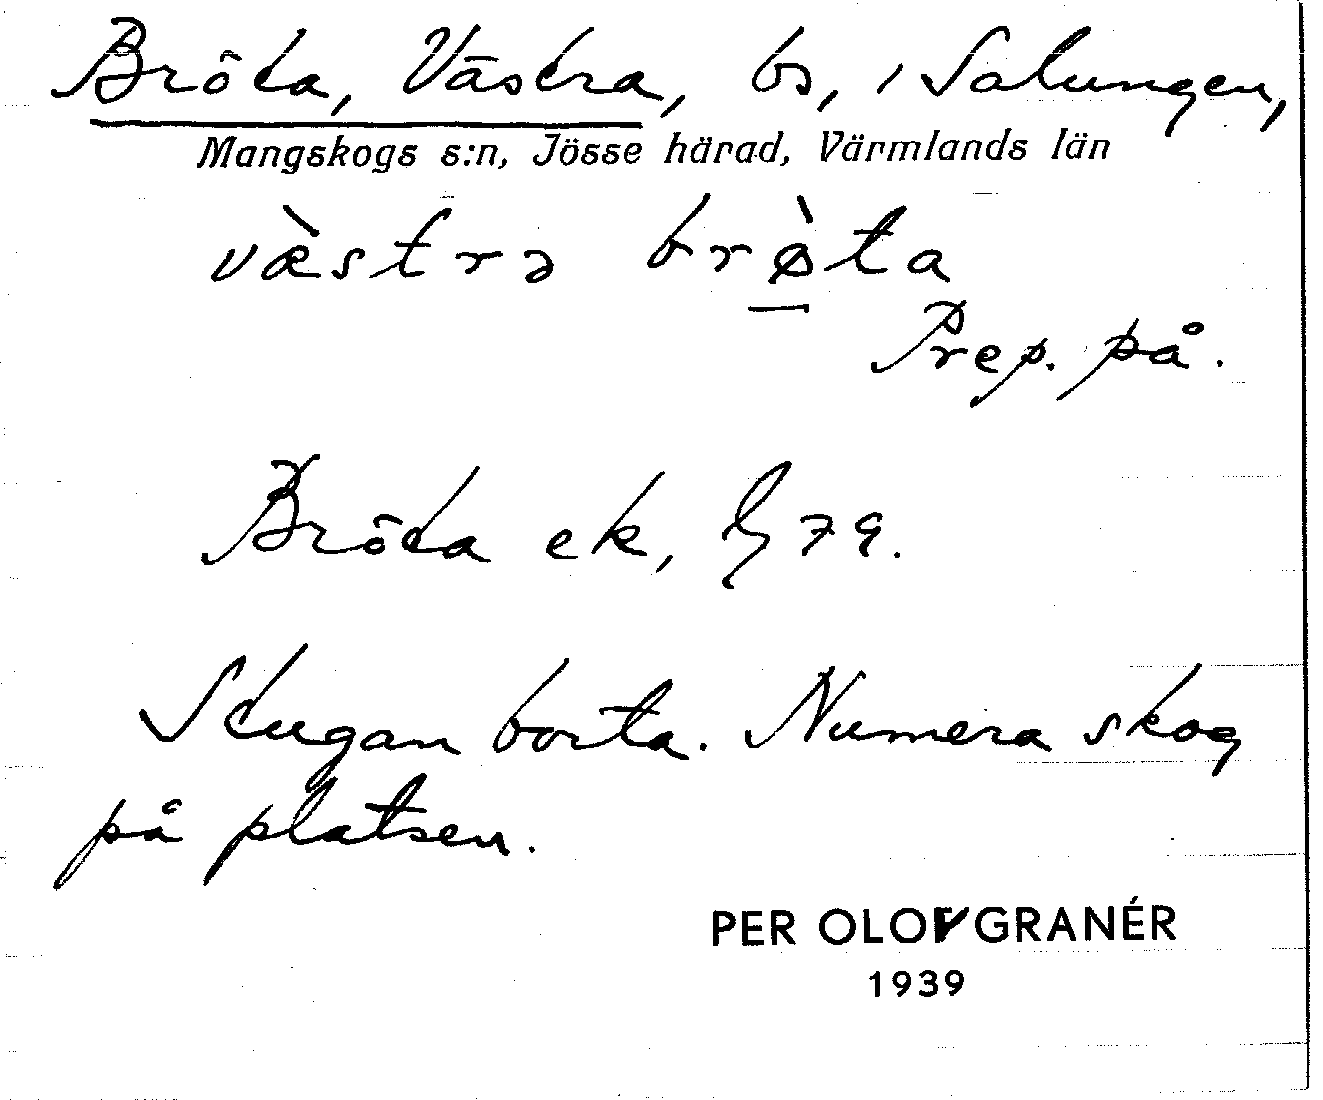 Bröta, Västra, bs, i Salungen,
Mangskogs s:n, Jösse härad, Värmlands län
væ̀strə brø̠̀ta
Prep. på.
Bröta ek, 79.
Stugan borta. Numera skog
på platsen.
PER OLOV GRANÉR
1939